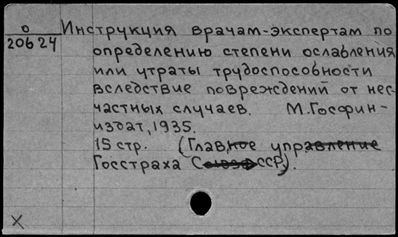 0
20624
Инструкция врачам-экспертам по
определению степени ослабления
или утраты трудоспособности
вследствие повреждений от нес-
частных случаев. М. Госфин-
издат, 1935.
15 стр. (Главное управление
Госстраха Союза ССР).
X